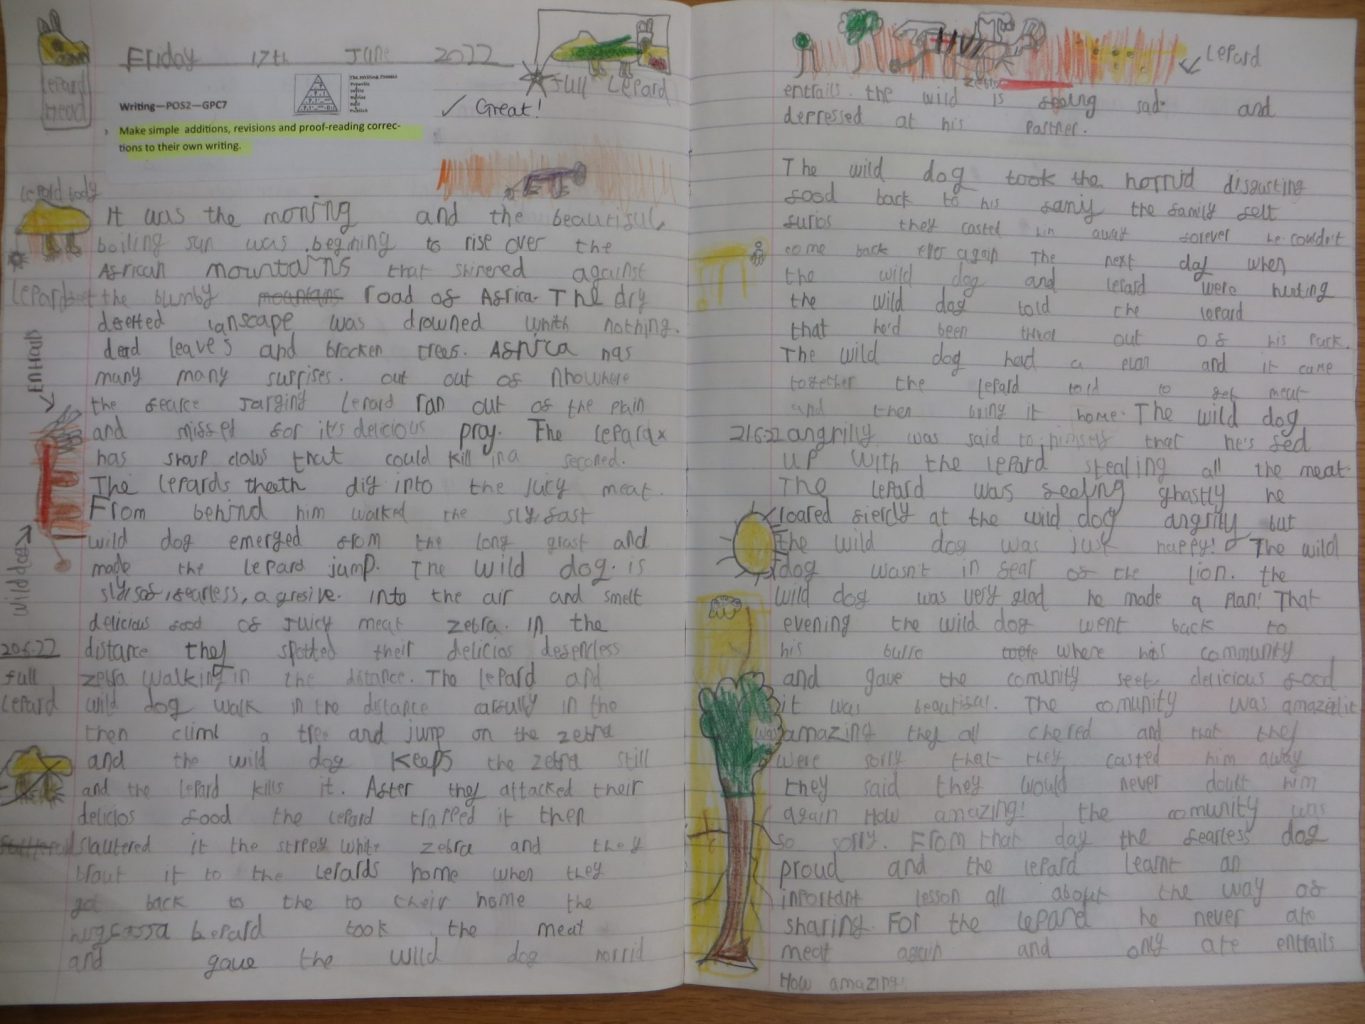 Friday 17th June 2022
Writing—POS2—GPC7
Make simple additions, revisions and proof-reading correc-
tions to their own writing.
The Writing Process
✓ Great!
Full Lepard
Lepard
Head
Lepard body
Lepard feet
Entrails
Wild dog
It was the morning and the beautiful,
boiling sun was begining to rise over the
African mountains that shirered against
the blumby mountans road of Africa. The dry
deserted lanscape was drowned whith nothing.
dead leaves and brocken trees. Africa has
many many surprises. out out of Nhowhere
the fearce Jarging Lepard ran out of the plain
and missed for it's delicious pray. The Lepard
has sharp claws that could kill in a seconed.
The Lepards theeth dig into the jucy meat.
From behind him walked the sly, fast
wild dog emerged from the long grast and
made the Lepard jump. The wild dog. is
sly, fast, fearless, agresive. into the air and smelt
delicious food of juicy meat zebra. In the
20.6.22
distance they spotted their delicios defencless
full
Lepard
zebra walking in the distance. The Lepard and
wild dog walk in the distance carfully in the
then climt a tree and jump on the zebra
and the wild dog keeps the zebra still
and the Lepard kills it. After they attacked their
delicios food the Lepard trapped it then
slautered it the stripey white zebra and they
brout it to the Lepards home when they
got back to the to their home the
Lepard took the meat
and gave the wild dog horrid
Lepard
zebra
entrails. the wild is feeling sad and
depressed at his Partner.
The wild dog took the horrid disgusting
food back to his famly the family felt
furios they casted him away forever he couldn't
come back ever again The next day when
the wild dog and Lepard were hunting
the wild dog told the Lepard
that he'd been throt out of his Pack.
The wild dog had a plan and it came
together the Lepard told to get meat
and then bring it home. The wild dog
21.6.22 angrilly was said to himself that he's fed
up with the Lepard stealing all the meat.
The Lepard was feeling ghastly he
loared fiercly at the wild dog angrily but
The wild dog was just happy! The wild
dog wasnt in fear of the lion. the
wild dog was very glad he made a plan! That
evening the wild dog went back to
his where his community
and gave the comunity feet delicious food
it was beautifal. The comunity was
was amazing they all chered and that they
were sorry that they casted him away
they said they would never doubt him
again How amazing! the comunity was
so sorry. From that day the fearless dog
proud and the Lepard learnt an
inportant lesson all about the way of
sharing. For the Lepard he never ate
meat again and only ate entrails
How amazing!